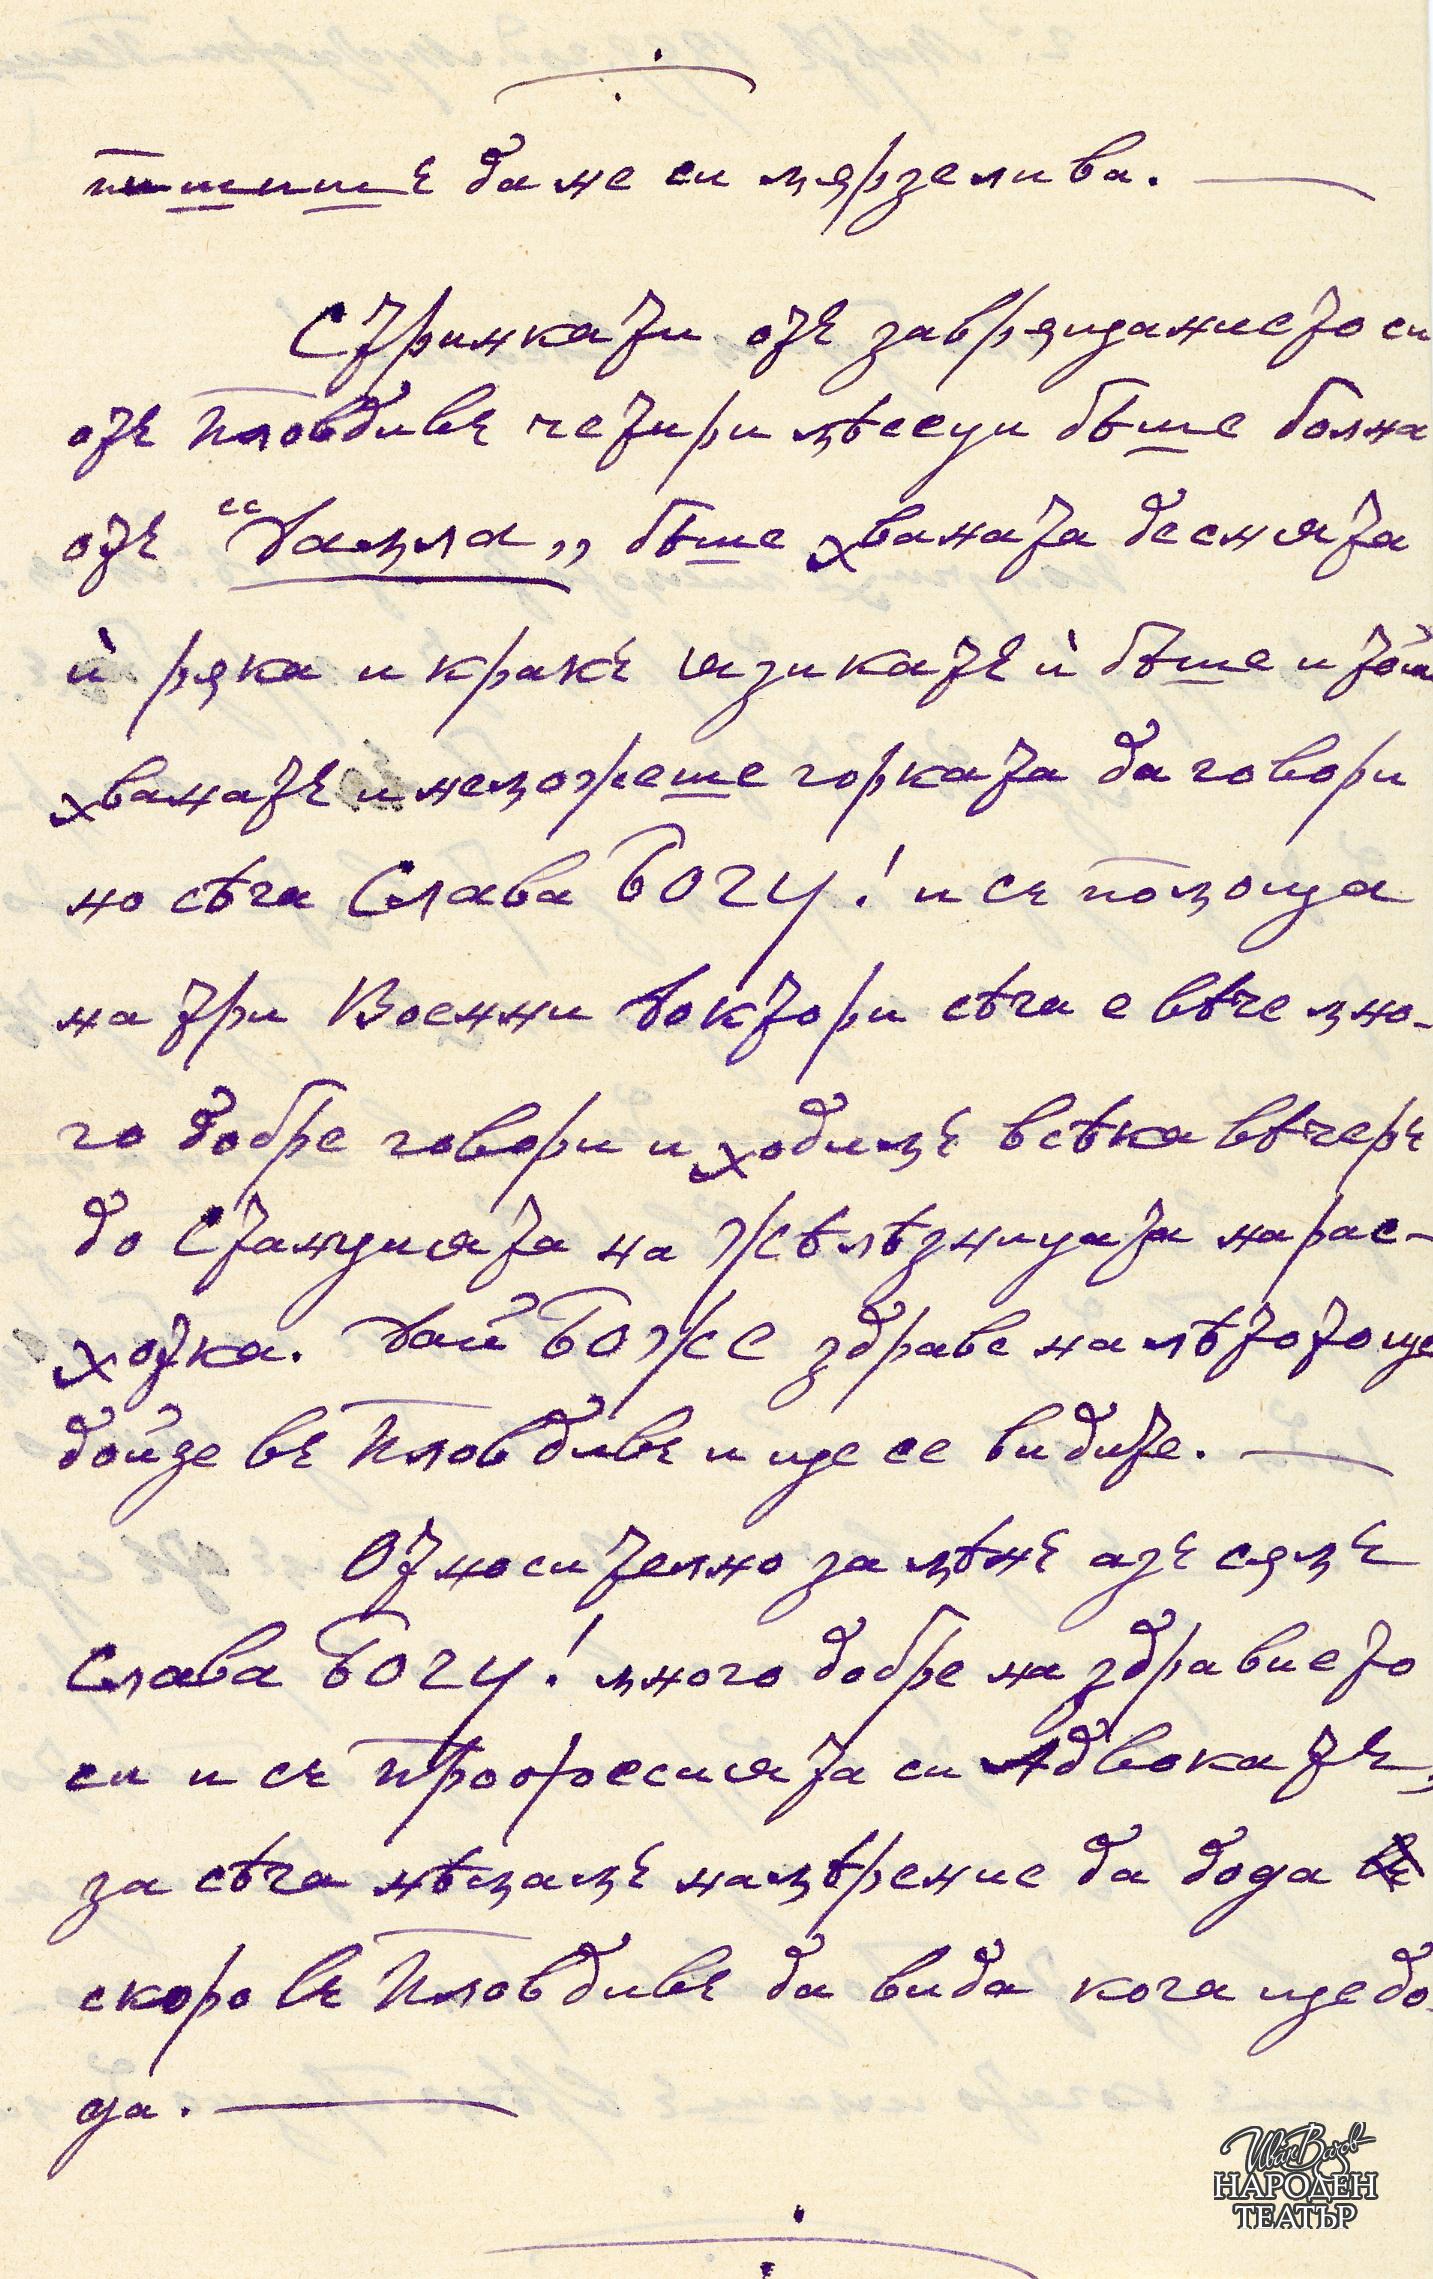 пишишъ да не си мързелива. —
Стринкати отъ завръщанието си
отъ Пловдивъ четири мѣсеци бѣше болна
отъ "Дамла„ бѣше хваната десната
ѝ ръка и кракъ язикатъ ѝ бѣше и той
хванатъ и неможеше горката да говори
но сѣга Слава БОГУ! и съ помоща
на три Военни Доктори сѣга е вѣче мно-
го добре говори и ходимъ всѣка вѣчеръ
до Станцията на Жѣлѣзницата на рас-
хотка. Дай БОЖЕ здраве на лѣтото ще
дойде въ Пловдивъ и ще се видите. —
Относително за мѣнъ азъ съмъ
Слава БОГУ! много добре на здравието
си и съ професията си Адвокатъ,
за сѣга нѣмамъ намѣрение да дода
скоро въ Пловдивъ да вида кога ще до-
да. —
Иван Вазов
НАРОДЕН
ТЕАТЪР